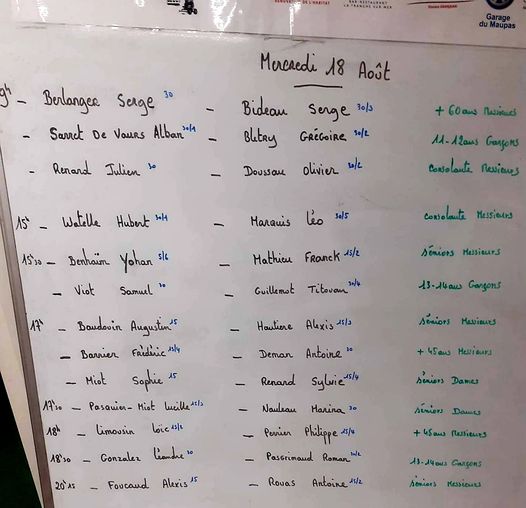 RENOVATION DE L'HABITAT
BAR RESTAURANT
LA TRANCHE SUR MER
Garage
du Maupas
Mercredi 18 Août
9h - Berlanger Serge 30 - Bideau Serge 30/3 + 60 ans Messieurs
- Sarret De Vaurs Alban 30/1 - Blitry Grégoire 30/2 11-12 ans Garçons
- Renard Julien 30 - Doussau Olivier 30/2 Consolante Messieurs
15h - Watelle Hubert 30/1 - Marquis Léo 30/5 Consolante Messieurs
15h30 - Benhaïm Yohan 5/6 - Mathieu Franck 15/2 séniors Messieurs
- Viot Samuel 30 - Guillemot Titouan 30/4 13-14 ans Garçons
17h - Baudouin Augustin 15 - Hautiere Alexis 15/3 séniors Messieurs
- Barrier Frédéric 15/4 - Deman Antoine 30 + 45 ans Messieurs
- Miot Sophie 15 - Renard Sylvie 15/4 séniors Dames
17h30 - Pasquier-Miot Lucille 15/3 - Nauleau Marina 30 séniors Dames
18h - Limousin Loïc 15/2 - Perrier Philippe 15/4 + 45 ans Messieurs
18h30 - Gonzalez Léandre 30 - Pasgrimaud Roman 30/2 13-14 ans Garçons
20h15 - Foucaud Alexis 15 - Rouas Antoine 15/2 séniors Messieurs